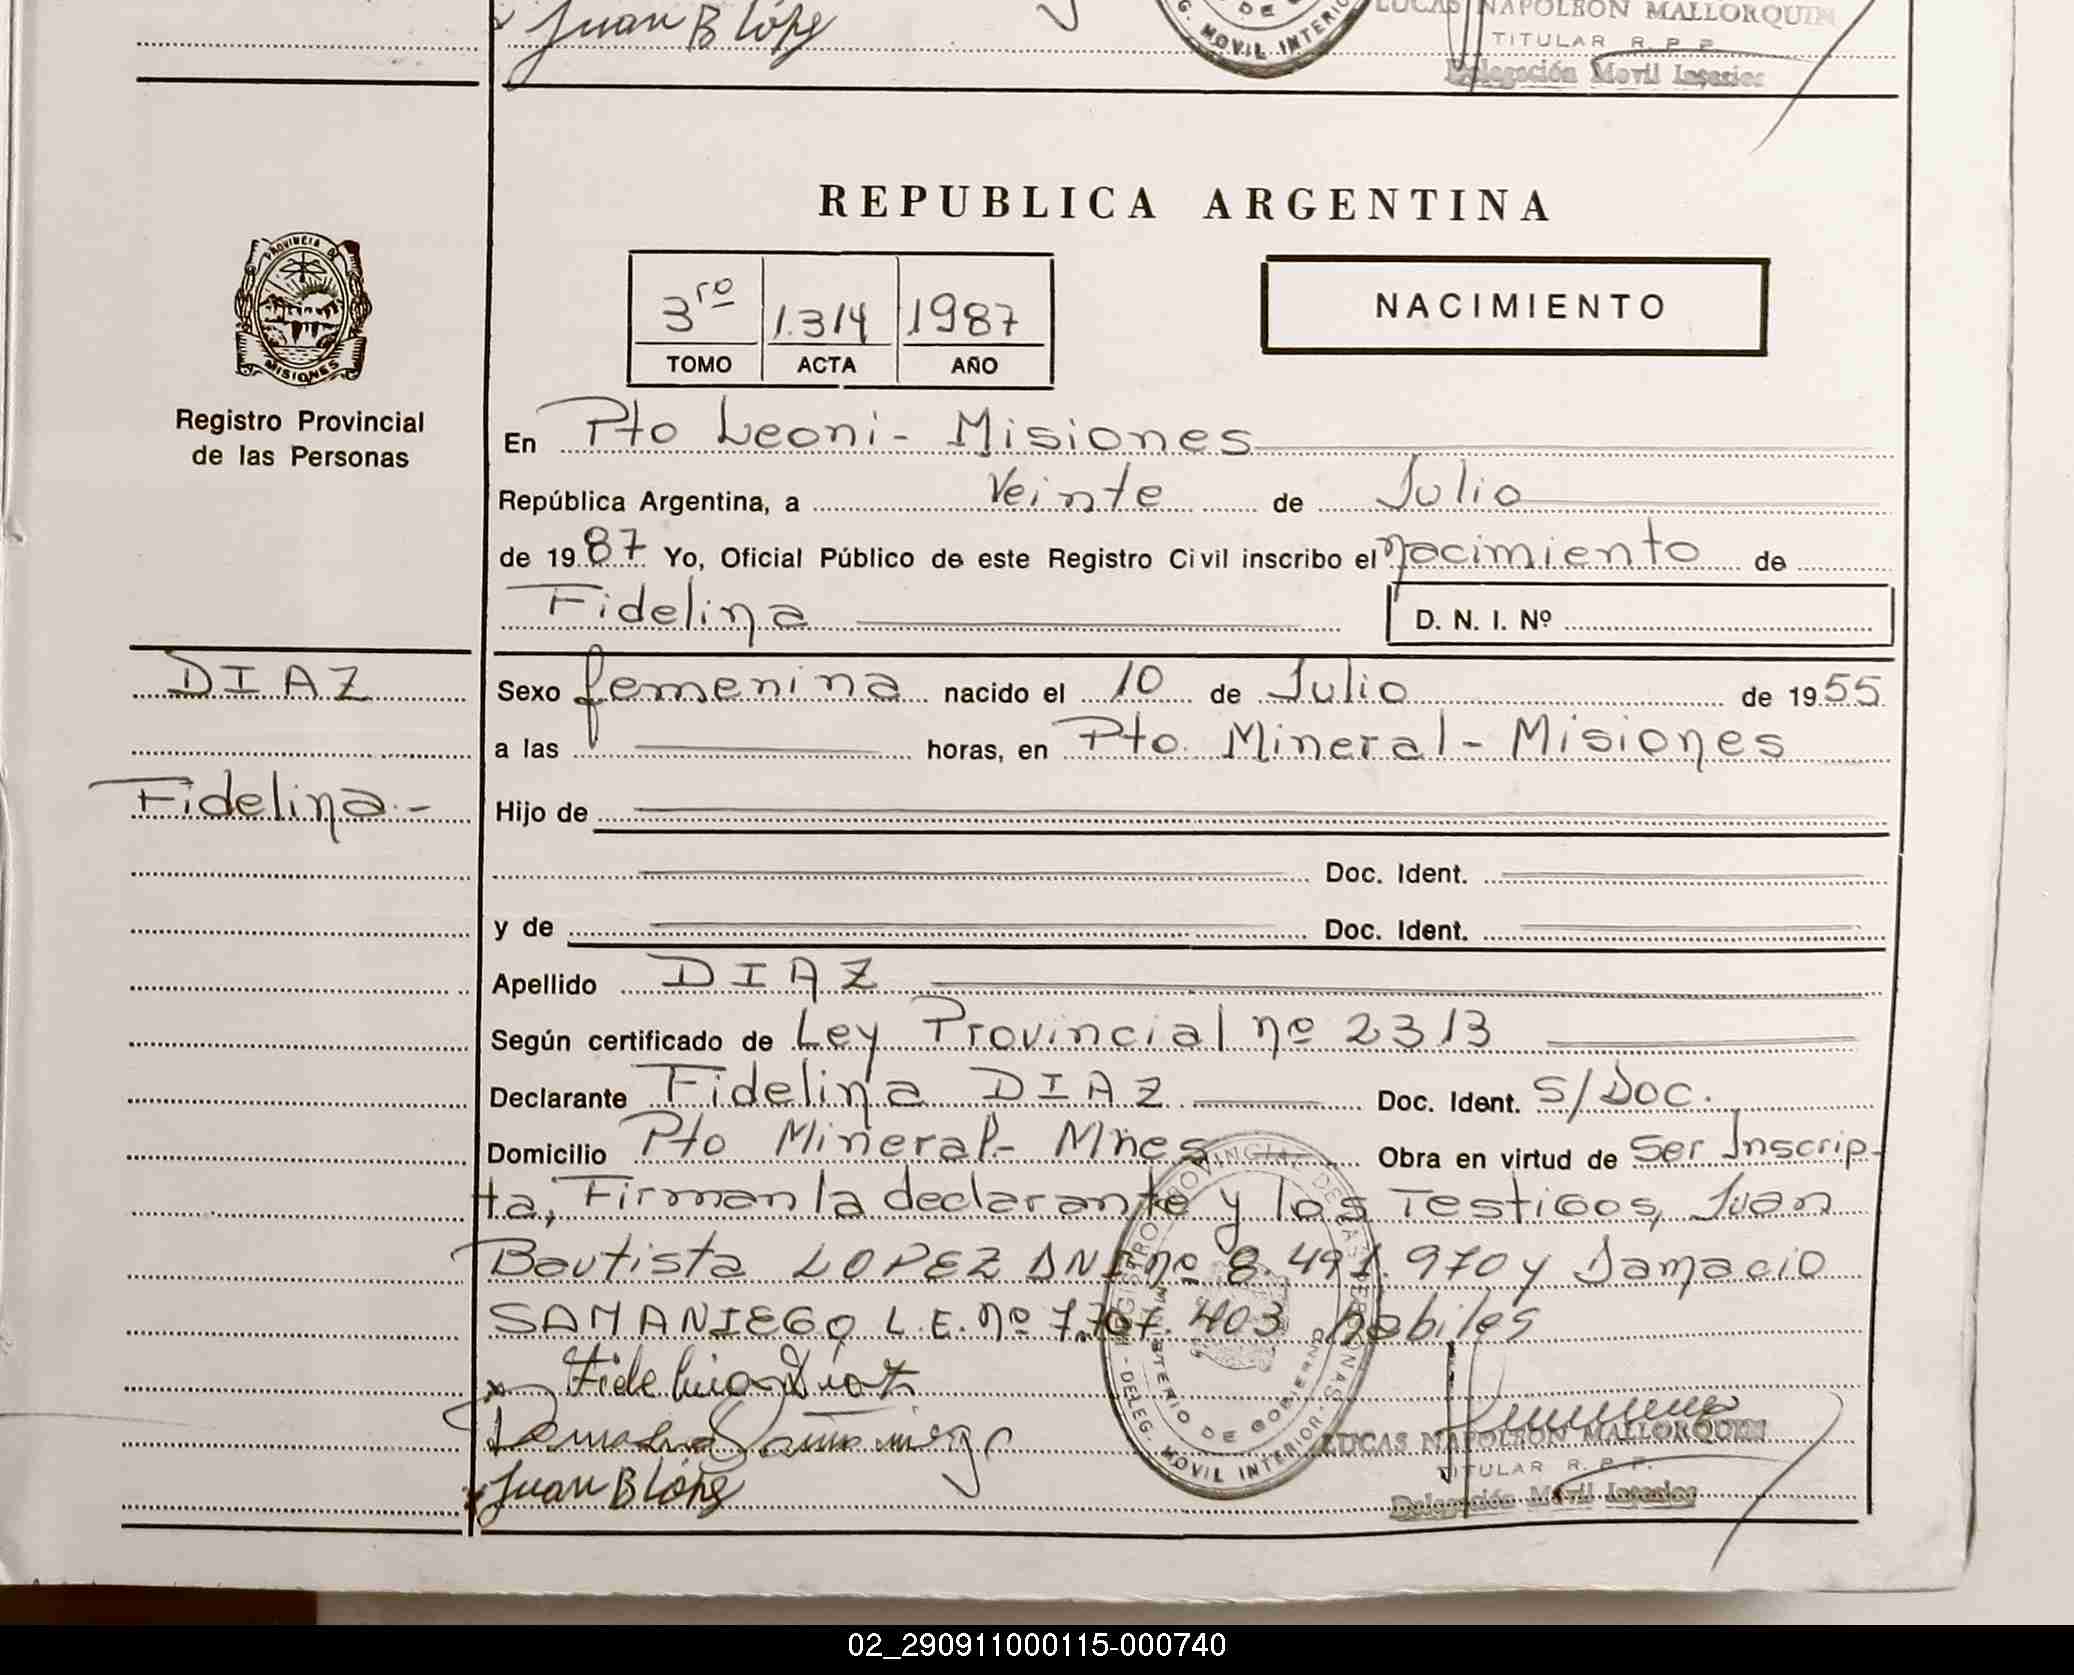 Juan B López
G. MOVIL INTERIO
LUCAS NAPOLEON MALLORQUIN
TITULAR R. P. P.
Delegación Movil Interior
REPUBLICA ARGENTINA
PROVINCIA DE
MISIONES
Registro Provincial
de las Personas
3ro 1.314 1987
TOMO ACTA AÑO
NACIMIENTO
En Pto Leoni - Misiones
República Argentina, a Veinte de Julio
de 1987 Yo, Oficial Público de este Registro Civil inscribo el nacimiento de
Fidelina D. N. I. Nº
DIAZ
Fidelina.-
Sexo femenina nacido el 10 de Julio de 1955
a las horas, en Pto. Mineral - Misiones
Hijo de
Doc. Ident.
y de Doc. Ident.
Apellido DIAZ
Según certificado de Ley Provincial nº 2313
Declarante Fidelina DIAZ Doc. Ident. S/Doc.
Domicilio Pto Mineral - Mnes Obra en virtud de Ser Inscrip-
ta, Firman la declarante y los Testigos, Juan
Bautista LOPEZ DNI nº 8.491.970 y Damacio
SAMANIEGO L.E. nº 7.707.403 habiles
Fidelina Diaz
Damacio Samaniego
Juan B López
REGISTRO PROVINCIAL DE LAS PERSONAS - DELEG. MOVIL INTERIOR -
MINISTERIO DE GOBIERNO
LUCAS NAPOLEON MALLORQUIN
TITULAR R. P. P.
Delegación Movil Interior
02_290911000115-000740